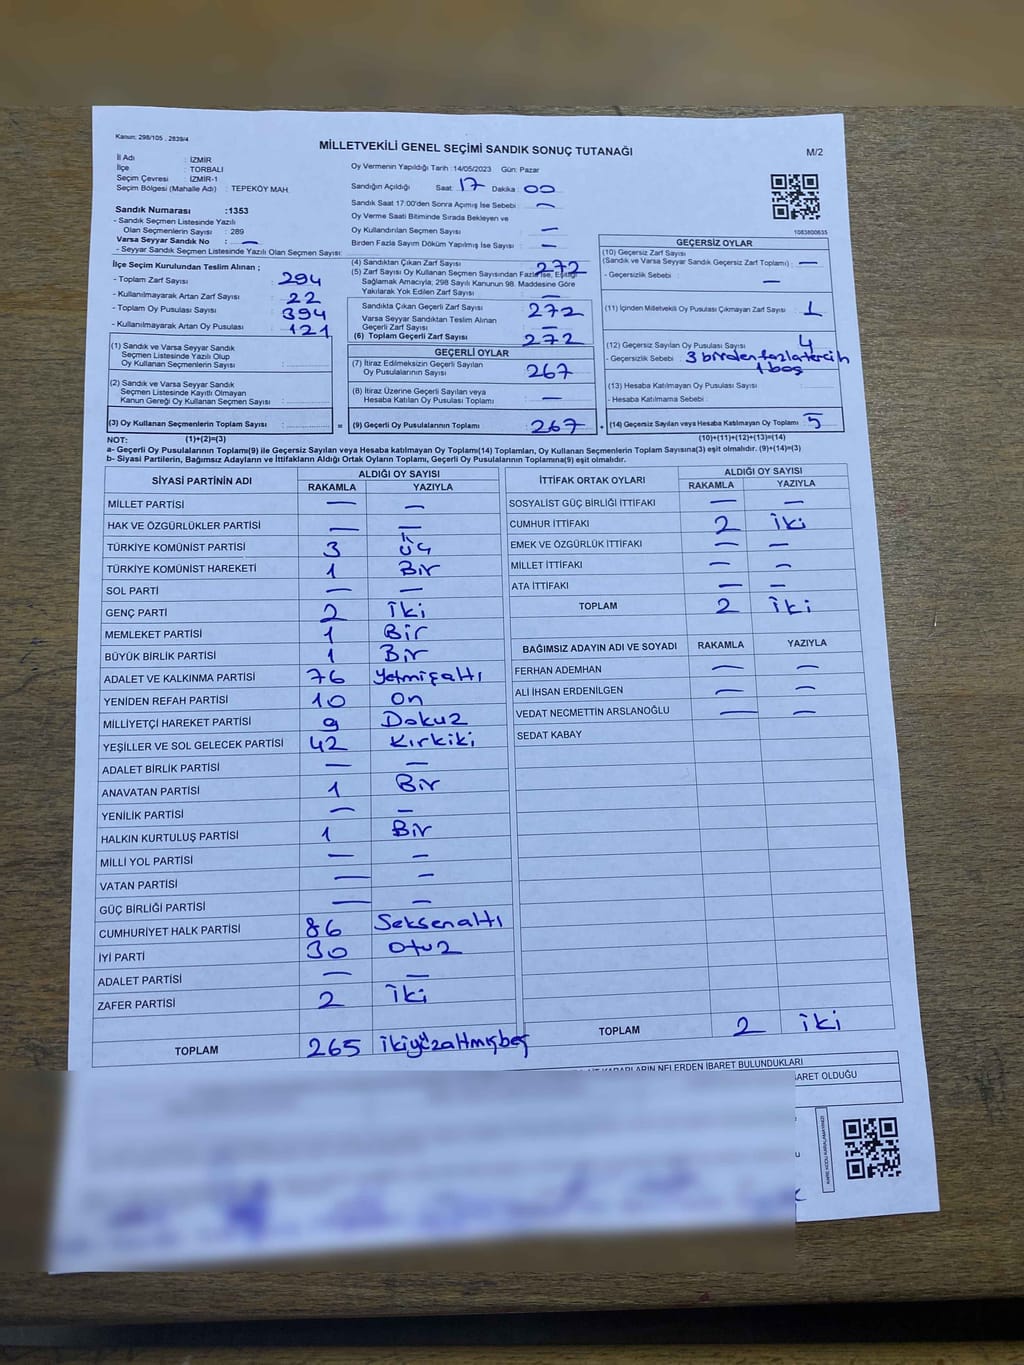 Kanun: 298/105 , 2839/4
MİLLETVEKİLİ GENEL SEÇİMİ SANDIK SONUÇ TUTANAĞI
M/2
İl Adı : İZMİR
İlçe : TORBALI
Seçim Çevresi : İZMİR-1
Seçim Bölgesi (Mahalle Adı) : TEPEKÖY MAH.
Oy Vermenin Yapıldığı Tarih : 14/05/2023 Gün: Pazar
Sandığın Açıldığı Saat : 17 Dakika : 00
Sandık Saat 17:00'den Sonra Açılmış İse Sebebi : —
Oy Verme Saati Bitiminde Sırada Bekleyen ve
Oy Kullandırılan Seçmen Sayısı : —
Birden Fazla Sayım Döküm Yapılmış İse Sayısı : —
1083800635
Sandık Numarası : 1353
- Sandık Seçmen Listesinde Yazılı
Olan Seçmenlerin Sayısı : 289
Varsa Seyyar Sandık No : —
- Seyyar Sandık Seçmen Listesinde Yazılı Olan Seçmen Sayısı:
İlçe Seçim Kurulundan Teslim Alınan ;
- Toplam Zarf Sayısı : 294
- Kullanılmayarak Artan Zarf Sayısı : 22
- Toplam Oy Pusulası Sayısı : 394
- Kullanılmayarak Artan Oy Pusulası : 121
(1) Sandık ve Varsa Seyyar Sandık
Seçmen Listesinde Yazılı Olup
Oy Kullanan Seçmenlerin Sayısı :
(2) Sandık ve Varsa Seyyar Sandık
Seçmen Listesinde Kayıtlı Olmayan
Kanun Gereği Oy Kullanan Seçmen Sayısı :
(3) Oy Kullanan Seçmenlerin Toplam Sayısı :
(4) Sandıktan Çıkan Zarf Sayısı : 272
(5) Zarf Sayısı Oy Kullanan Seçmen Sayısından Fazla İse, Eşitliği
Sağlamak Amacıyla; 298 Sayılı Kanunun 98. Maddesine Göre
Yakılarak Yok Edilen Zarf Sayısı : —
Sandıkta Çıkan Geçerli Zarf Sayısı : 272
Varsa Seyyar Sandıktan Teslim Alınan
Geçerli Zarf Sayısı : —
(6) Toplam Geçerli Zarf Sayısı : 272
GEÇERLİ OYLAR
(7) İtiraz Edilmeksizin Geçerli Sayılan
Oy Pusulalarının Sayısı : 267
(8) İtiraz Üzerine Geçerli Sayılan veya
Hesaba Katılan Oy Pusulası Toplamı : —
= (9) Geçerli Oy Pusulalarının Toplamı : 267
GEÇERSİZ OYLAR
(10) Geçersiz Zarf Sayısı
(Sandık ve Varsa Seyyar Sandık Geçersiz Zarf Toplamı) : —
- Geçersizlik Sebebi : —
(11) İçinden Milletvekili Oy Pusulası Çıkmayan Zarf Sayısı : 1
(12) Geçersiz Sayılan Oy Pusulası Sayısı : 4
- Geçersizlik Sebebi : 3 birden fazla tercih
1 boş
(13) Hesaba Katılmayan Oy Pusulası Sayısı :
- Hesaba Katılmama Sebebi :
+ (14) Geçersiz Sayılan veya Hesaba Katılmayan Oy Toplamı : 5
NOT: (1)+(2)=(3) (10)+(11)+(12)+(13)=(14)
a- Geçerli Oy Pusulalarının Toplamı(9) ile Geçersiz Sayılan veya Hesaba Katılmayan Oy Toplamı(14) Toplamları, Oy Kullanan Seçmenlerin Toplam Sayısına(3) eşit olmalıdır. (9)+(14)=(3)
b- Siyasi Partilerin, Bağımsız Adayların ve İttifakların Aldığı Ortak Oyların Toplamı, Geçerli Oy Pusulalarının Toplamına(9) eşit olmalıdır.
SİYASİ PARTİNİN ADI ALDIĞI OY SAYISI
RAKAMLA YAZIYLA
MİLLET PARTİSİ — —
HAK VE ÖZGÜRLÜKLER PARTİSİ — —
TÜRKİYE KOMÜNİST PARTİSİ 3 üç
TÜRKİYE KOMÜNİST HAREKETİ 1 Bir
SOL PARTİ — —
GENÇ PARTİ 2 İki
MEMLEKET PARTİSİ 1 Bir
BÜYÜK BİRLİK PARTİSİ 1 Bir
ADALET VE KALKINMA PARTİSİ 76 yetmişaltı
YENİDEN REFAH PARTİSİ 10 On
MİLLİYETÇİ HAREKET PARTİSİ 9 Dokuz
YEŞİLLER VE SOL GELECEK PARTİSİ 42 Kırkiki
ADALET BİRLİK PARTİSİ — —
ANAVATAN PARTİSİ 1 Bir
YENİLİK PARTİSİ — —
HALKIN KURTULUŞ PARTİSİ 1 Bir
MİLLİ YOL PARTİSİ — —
VATAN PARTİSİ — —
GÜÇ BİRLİĞİ PARTİSİ — —
CUMHURİYET HALK PARTİSİ 86 Seksenaltı
İYİ PARTİ 30 Otuz
ADALET PARTİSİ — —
ZAFER PARTİSİ 2 İki
TOPLAM 265 ikiyüzaltmışbeş
İTTİFAK ORTAK OYLARI ALDIĞI OY SAYISI
RAKAMLA YAZIYLA
SOSYALİST GÜÇ BİRLİĞİ İTTİFAKI — —
CUMHUR İTTİFAKI 2 İki
EMEK VE ÖZGÜRLÜK İTTİFAKI — —
MİLLET İTTİFAKI — —
ATA İTTİFAKI — —
TOPLAM 2 İki
BAĞIMSIZ ADAYIN ADI VE SOYADI RAKAMLA YAZIYLA
FERHAN ADEMHAN — —
ALİ İHSAN ERDENİLGEN — —
VEDAT NECMETTİN ARSLANOĞLU — —
SEDAT KABAY
TOPLAM 2 iki
KARARLARIN NELERDEN İBARET BULUNDUKLARI
İBARET OLDUĞU